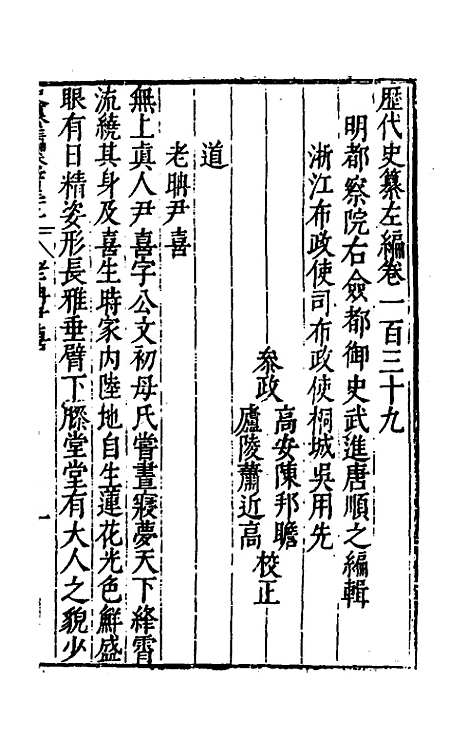 歷代史纂左編卷一百三十九
明都察院右僉都御史武進唐順之編輯
浙江布政使司布政使桐城吳用先
高安陳邦瞻
參政
校正
廬陵蕭近高
道
老聃尹喜
無上眞人尹喜字公文初母氏嘗晝寢夢天下絳霄
流繞其身及喜生時家內陸地自生蓮花光色鮮盛
眼有日精姿形長雅垂臂下膝堂堂有大人之貌少
老聃尹喜
一